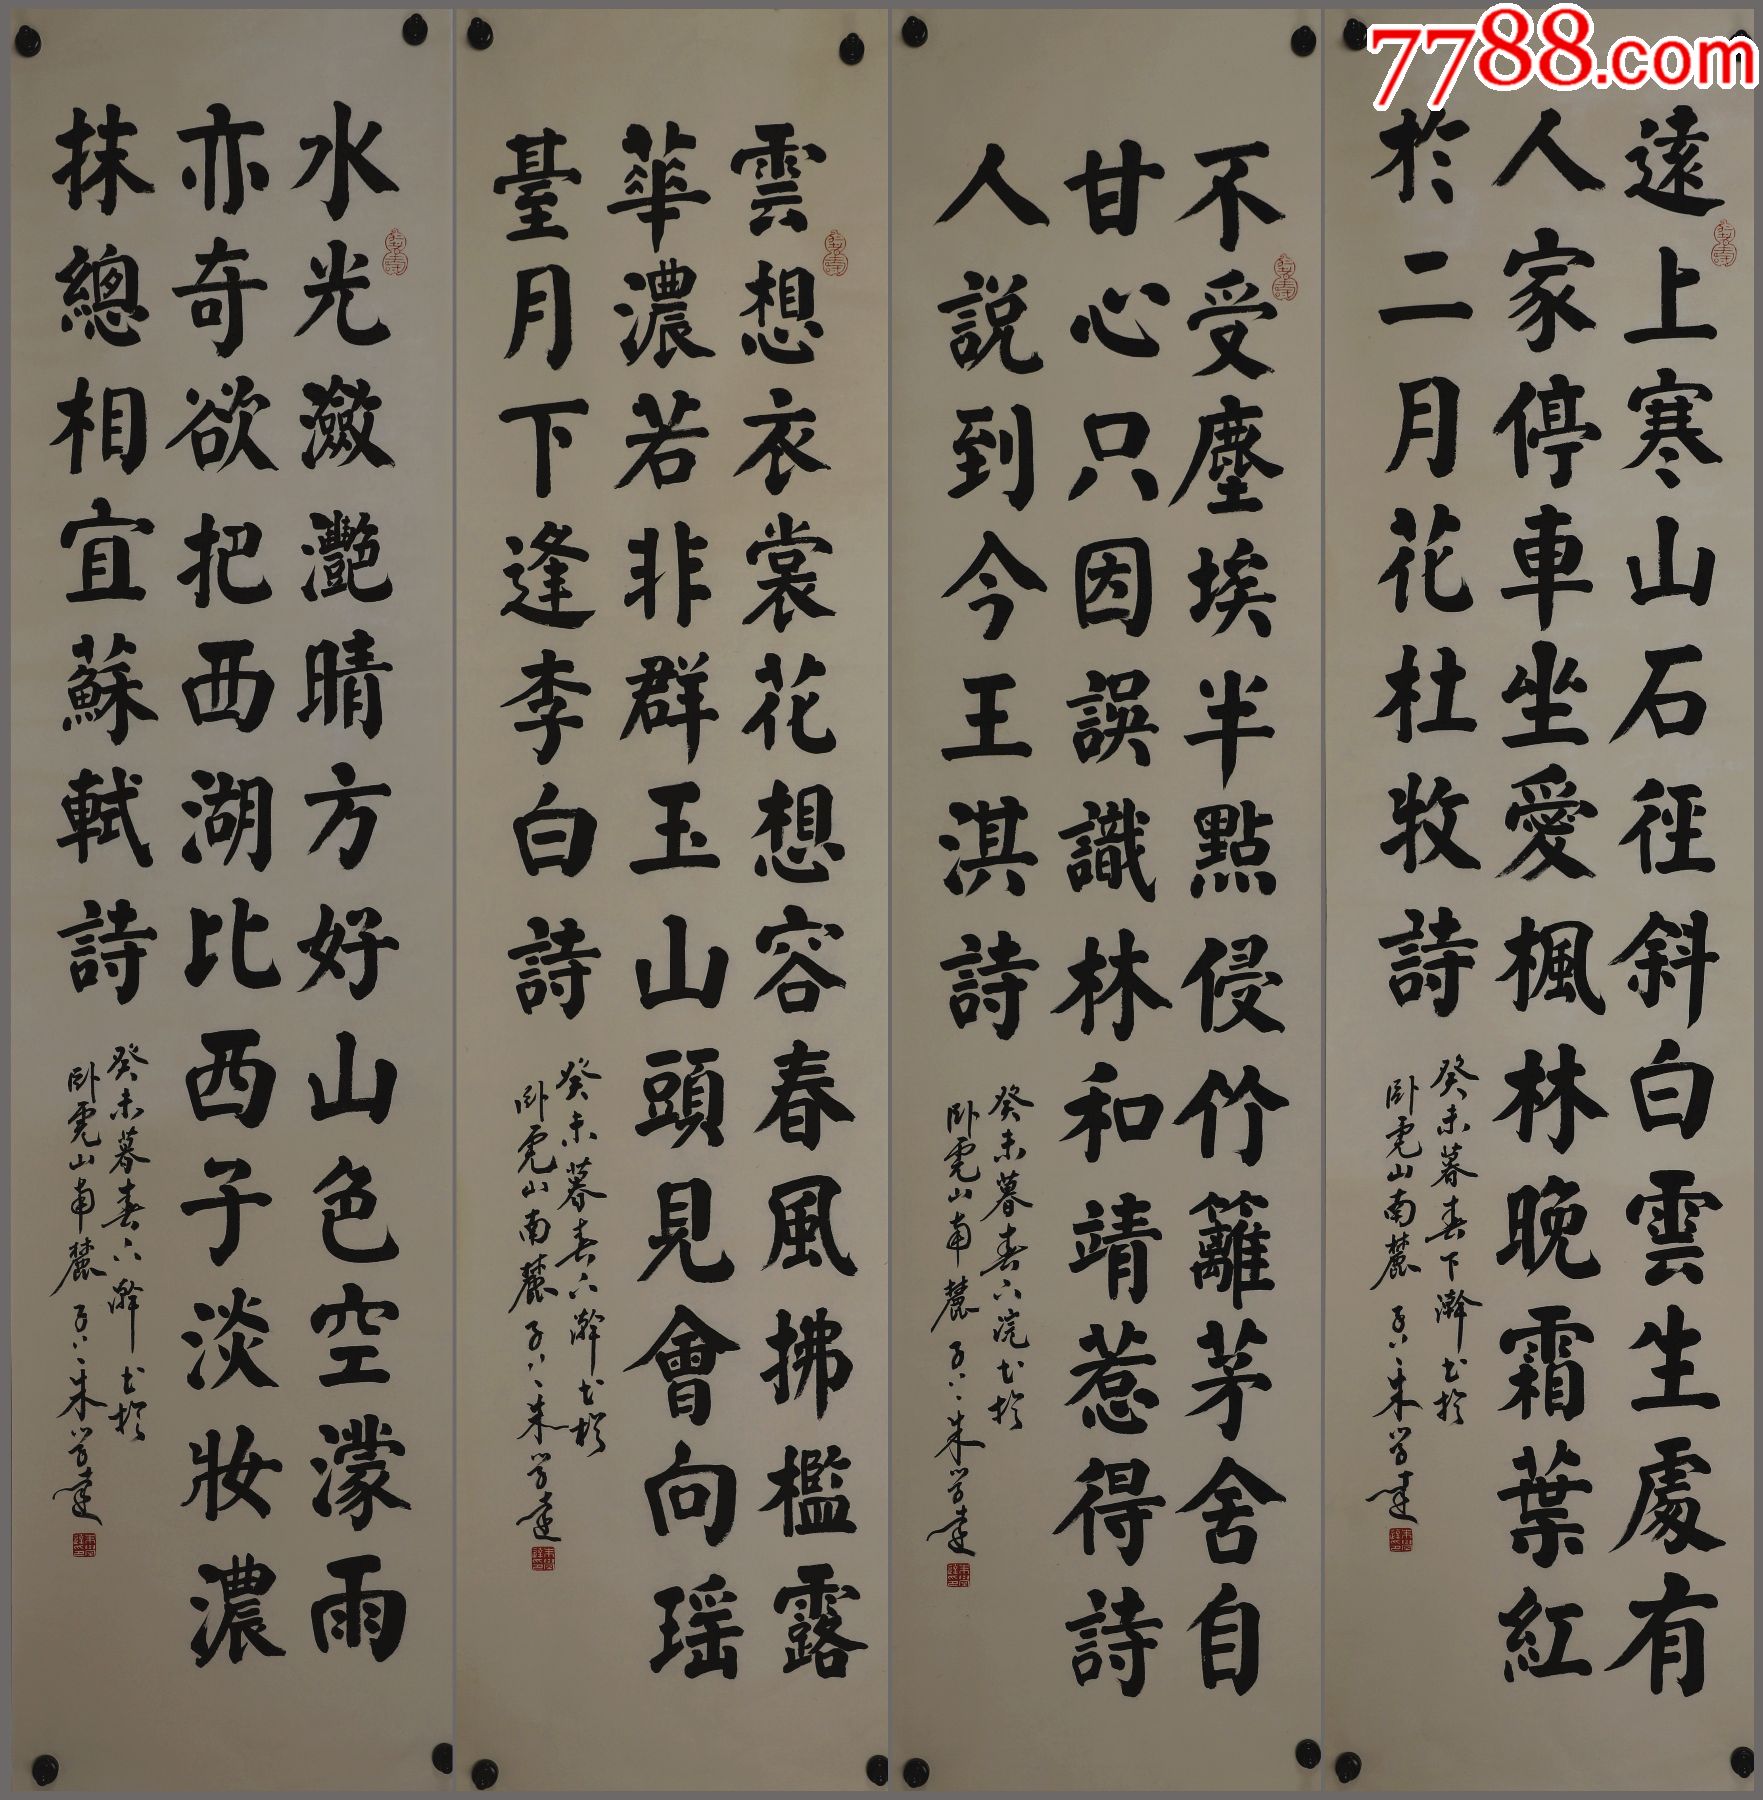 7788.com
遠上寒山石徑斜白雲生處有
人家停車坐愛楓林晚霜葉紅
於二月花杜牧詩
癸未暮春下澣書於
卧虎山南麓
朱學達
不受塵埃半點侵竹籬茅舍自
甘心只因誤識林和靖惹得詩
人説到今王淇詩
癸未暮春下浣書於
卧虎山南麓
朱學達
雲想衣裳花想容春風拂檻露
華濃若非群玉山頭見會向瑶
臺月下逢李白詩
癸未暮春下澣書於
卧虎山南麓
朱學達
水光瀲灔晴方好山色空濛雨
亦奇欲把西湖比西子淡妝濃
抹總相宜蘇軾詩
癸未暮春下澣書於
卧虎山南麓
朱學達